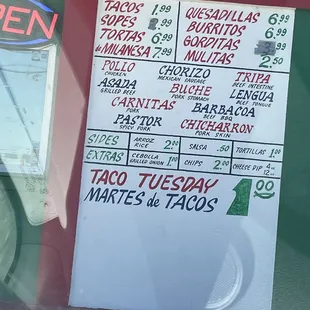 OPEN
TACOS 1.99 QUESADILLAS 6.99
SOPES 2.99 BURRITOS 6.99
TORTAS 6.99 GORDITAS
de MILANESA 7.99 MULITAS 2.50
POLLO CHORIZO TRIPA
CHICKEN MEXICAN SAUSAGE BEEF INTESTINE
ASADA BUCHE LENGUA
GRILLED BEEF PORK STOMACH BEEF TONGUE
CARNITAS BARBACOA
PORK BEEF BBQ
PASTOR CHICHARRON
SPICY PORK PORK SKIN
SIDES ARROZ RICE 2.00 SALSA .50 TORTILLAS 1.00
EXTRAS CEBOLLA GRILLED ONION 1.00 CHIPS 2.00 CHEESE DIP
TACO TUESDAY 1.00
MARTES de TACOS